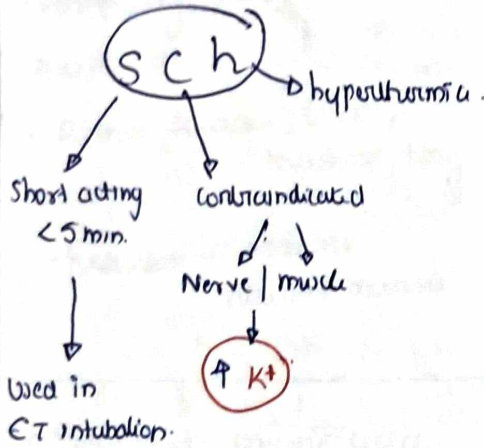 SCh
hyperthermia.
Short acting
<5 min.
Contraindicated
Nerve | muscle
↑ K+
Used in
ET intubation.